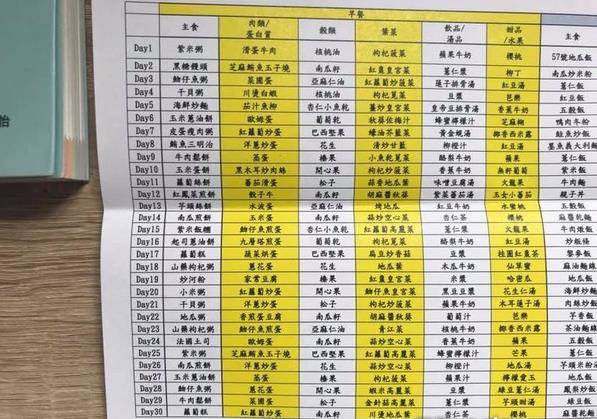 早餐
主食 肉類/蛋白質 穀類 葉菜 飲品/湯品 甜品/水果 主食
Day1 紫米粥 滑蛋牛肉 核桃油 枸杞菠菜 蘋果牛奶 櫻桃 57號地瓜飯
Day2 黑糖饅頭 芝麻鮪魚玉子燒 南瓜籽 紅棗皇宮菜 薏仁漿 柳丁 南瓜炒米粉
Day3 鮑仔魚粥 菜圃蛋 亞麻仁油 紅蘿蔔炒菠菜 蓮子排骨湯 紅豆湯 薏仁飯
Day4 干貝粥 川燙白蝦 核桃油 枸杞莧菜 豆漿 芭樂 紅豆飯
Day5 海鮮炒麵 茄汁魚柳 杏仁小魚乾 薑炒皇宮菜 皇帝豆排骨湯 香蕉牛奶 五穀飯
Day6 玉米蔥油餅 歐姆蛋 葡萄乾 秋葵佐梅汁 蜂蜜檸檬汁 芝麻糊 鴨肉冬粉
Day7 皮蛋瘦肉粥 紅蘿蔔炒蛋 巴西堅果 蠔油芥藍菜 黃金蜆湯 椰香西米露 鮭魚炒飯
Day8 鮪魚三明治 洋蔥炒蛋 花生 清炒甘藍 柳橙汁 紅豆湯 墨魚義大利麵
Day9 牛肉鬆餅 蒸蛋 榛果 小魚乾莧菜 酪梨牛奶 蘋果 薏仁飯
Day10 玉米蛋餅 黑木耳炒肉絲 開心果 枸杞菠菜 香蕉牛奶 無籽葡萄 紫米飯
Day11 蘿蔔絲餅 蕃茄滑蛋 松子 蒜香地瓜葉 味噌豆腐湯 火龍果 牛肉麵
Day12 紅鳳菜煎餅 骰子牛 南瓜籽 胡麻醬秋葵 紫菜蛋花湯 玉女小蕃茄 親子丼
Day13 芋頭絲餅 水波蛋 亞麻仁油 烤地瓜 紅豆牛奶 水蜜桃 五穀飯
Day14 南瓜煎餅 玉米蛋 南瓜籽 蒜炒空心菜 杏仁茶 櫻桃 麻醬乾麵
Day15 紫米飯糰 鮑仔煎蛋 杏仁小魚乾 枸杞莧菜 薏仁漿 火龍果 牛肉燉飯
Day16 起司蔥油餅 九層塔煎蛋 葡萄乾 枸杞莧菜 酪梨牛奶 紅豆湯 炒板條
Day17 蘿蔔糕 蔬菜烘蛋 巴西堅果 扁豆炒香菇 豆漿 桂圓紅棗茶 藜麥飯
Day18 山藥枸杞粥 蔥花蛋 花生 地瓜葉 木瓜牛奶 仙草蜜 麻油麵線
Day19 炒河粉 家常豆腐 榛果 川燙菠菜 米漿 哈密瓜 地瓜飯
Day20 小米粥 紅蘿蔔炒蛋 開心果 紅棗皇宮菜 黑豆豆漿 花生仁湯 海鮮炒麵
Day21 干貝粥 洋蔥炒蛋 松子 枸杞菠菜 蘋果牛奶 木耳蓮子湯 肉絲炒飯
Day22 地瓜粥 香煎蛋豆腐 南瓜籽 胡麻醬秋葵 葡萄汁 芭樂 芋香飯
Day23 山藥枸杞粥 鮑仔魚煎蛋 亞麻仁油 青江菜 核桃牛奶 椰香西米露 茶油麵線
Day24 法國土司 蔥花蛋 南瓜籽 蒜炒空心菜 香蕉牛奶 紅豆湯 五穀飯
Day25 紫米粥 芝麻鮪魚玉子燒 巴西堅果 紅蘿蔔高麗菜 蜂蜜檸檬汁 芒果 薏仁飯
Day26 南瓜煎餅 洋蔥炒蛋 花生 枸杞菠菜 柳橙汁 地瓜湯 芋頭米粉
Day27 玉米蔥油餅 蒸蛋 榛果 枸杞菠菜 蘋果牛奶 檸檬愛玉 地瓜飯
Day28 薏仁粥 蔥花蛋 開心果 蝦米高麗菜 豆漿 綠豆薏仁湯 鳳梨炒飯
Day29 牛肉鬆餅 菜圃蛋 松子 金針菇高麗菜 薏仁漿 芋頭甜湯
Day30 蘿蔔糕 紅蘿蔔炒蛋 南瓜籽 川燙地瓜葉 杏仁茶 綠豆湯